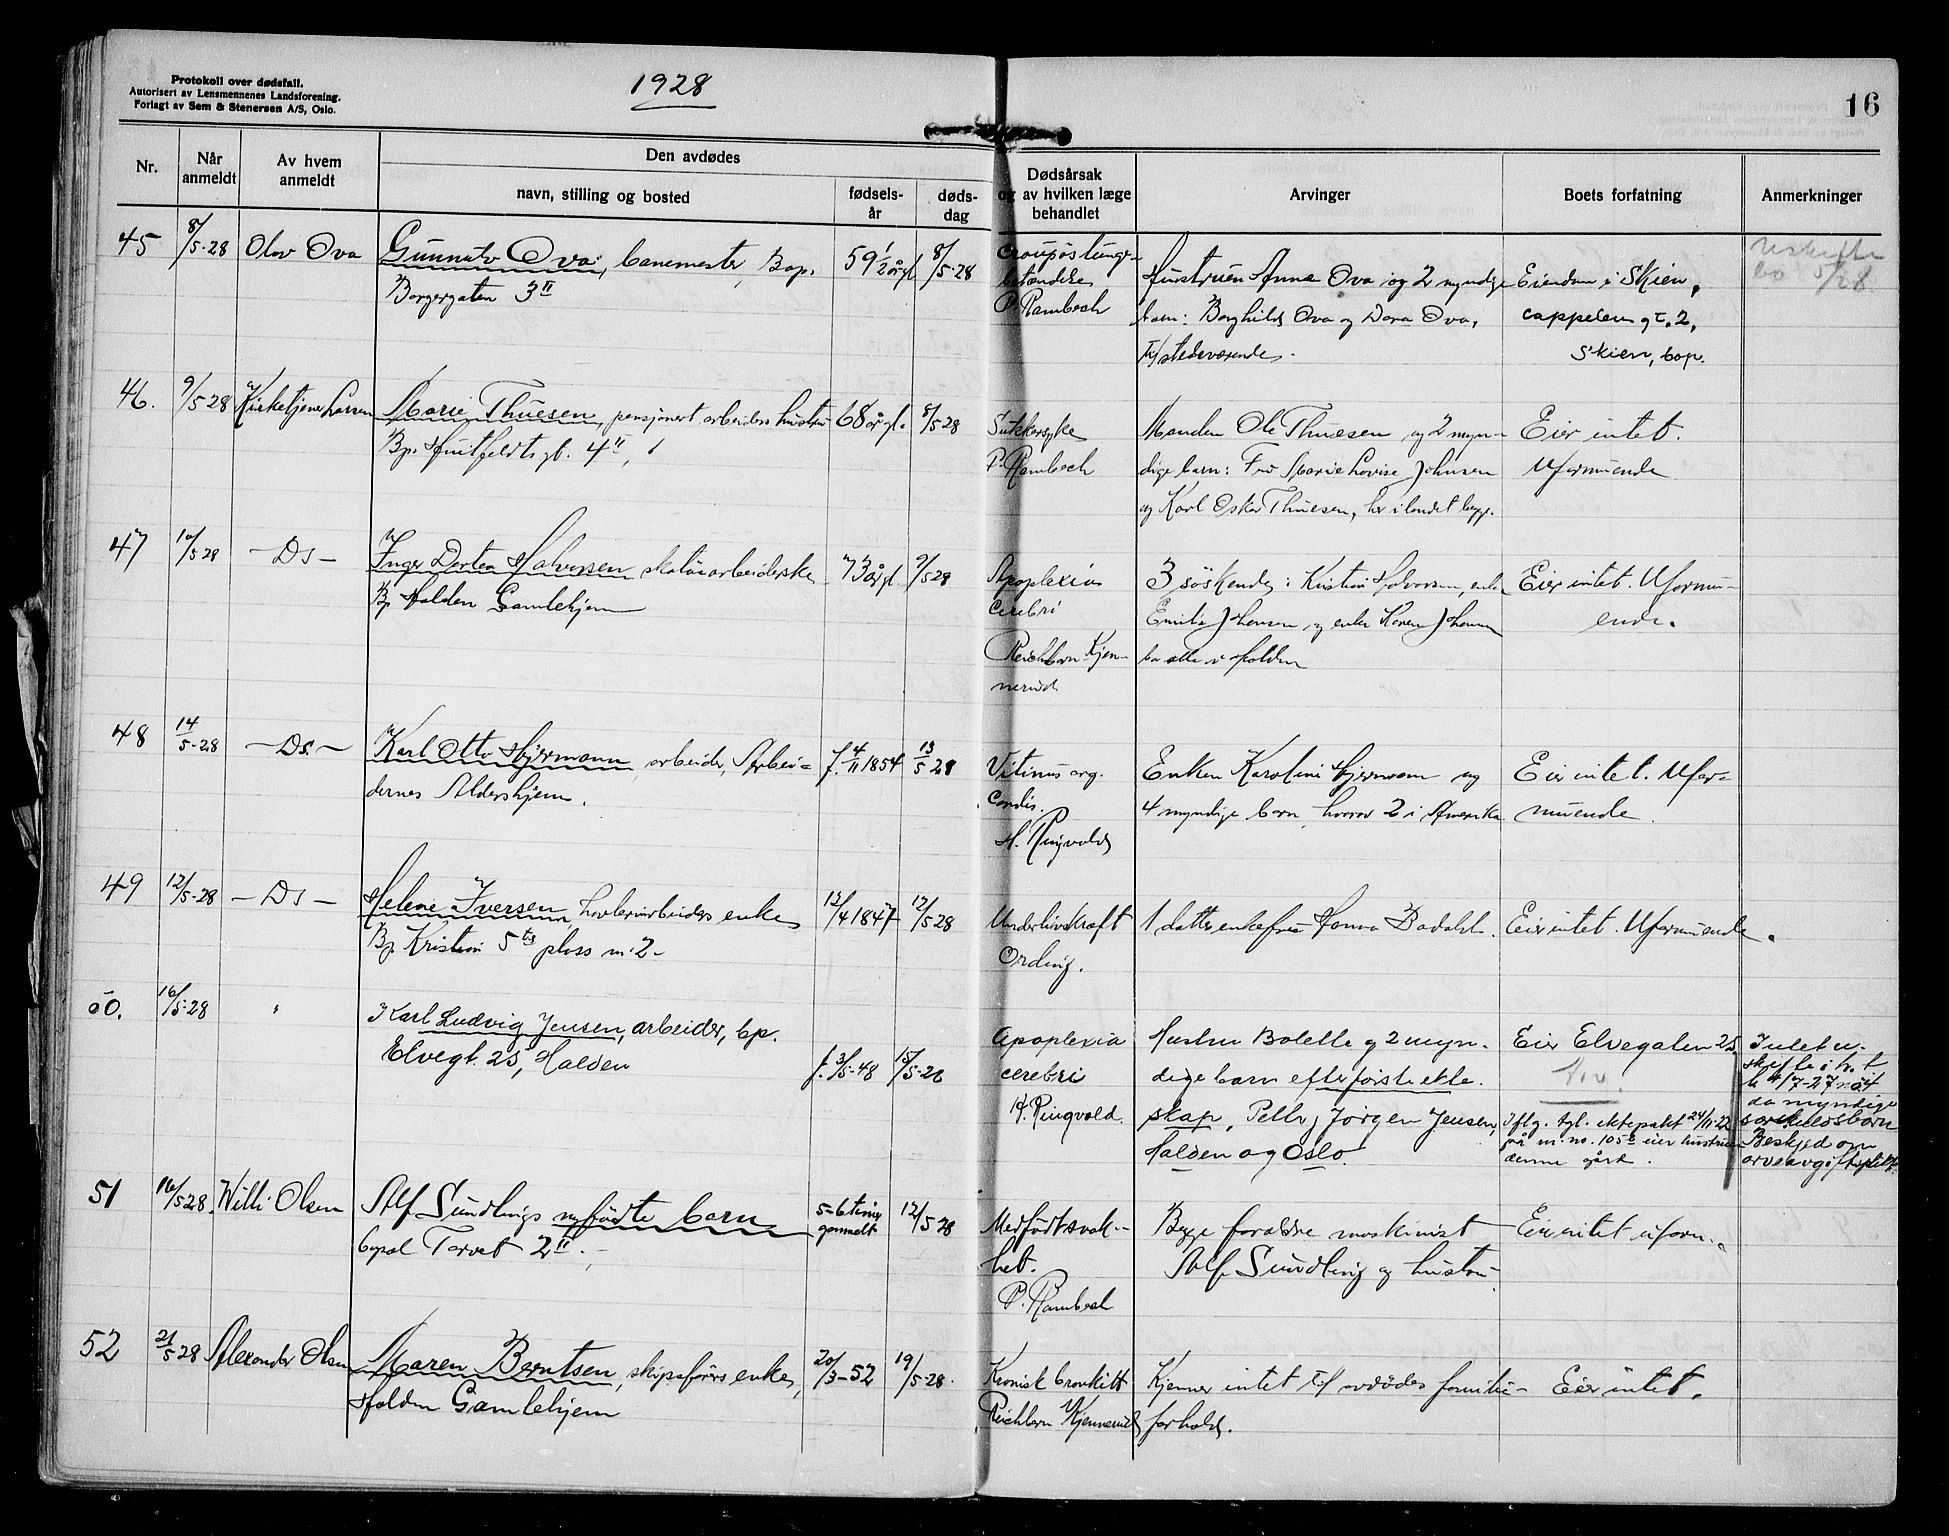 Protokoll over dødsfall.
Autorisert av Lensmennenes Landsforening.
Forlagt av Sem & Stenersen A/S, Oslo.
1928
16
Nr.
Når anmeldt
Av hvem anmeldt
Den avdødes
navn, stilling og bosted
fødsels-år
døds-dag
Dødsårsak og av hvilken læge behandlet
Arvinger
Boets forfatning
Anmerkninger
45 8/5-28 Olav Ova Gunnulv Ova, banemester, Bop. 59 1/2 år gl. 8/5-28
Borgergaten 3 II
betændelse
P. Rambech
Hustruen Anna Ova og 2 myndige
barn: Borghild Ova og Dora Ova,
tilstedeværende.
Eiendom i Skien,
Cappelens gt. 2,
Skien, bop.
Uskifte
bo 5/28
46. 9/5-28 Kirketjener Larsen Marie Thuesen, pensjonert arbeiders hustru 68 år gl. 8/5-28
Bp. Huitfeldts gt. 4 II,
Sukkersyke
P. Rambech
Manden Ole Thuesen og 2 myn-
dige barn: Fru Marie Lovise Johnsen
og Karl Oskar Thuesen, her i landet begge.
Eier intet.
Uformuende
47 10/5-28 -Ds- Inger Dortea Halvorsen skotøiarbeiderske 73 år gl. 9/5-28
Bp. Halden Gamlehjem
Apoplexia
cerebri
Reichborn Kjen-
nerud
3 søskende: Kristine Halvorsen, enke
Emilie Johansen, og enke Karen Johansen
bo alle i Halden
Eier intet. Uformu-
ende.
48 14/5-28 -Ds.- Karl Otto Hjermann, arbeider, Arbei-
dernes Aldershjem.
f. 4/11 1854 13/5 28
Vitinus org.
cordis.
H. Ringvold
Enken Karoline Hjermann og
4 myndige barn, hvorav 2 i Amerika
Eier intet. Ufor-
muende.
49 12/5-28 -Ds- Helene Iversen, høvleriarbeiders enke 12/4 1847 12/5-28
Bp. Kristian 5tes plass nr. 2-
Underlivskraft
Ording.
1 datter enkefru Hanna Bodahl.
Eier intet. Uformuende.
50. 16/5-28 " Karl Ludvig Jensen, arbeider, bp.
Elvegt. 25, Halden
f. 3/5-48 15/5-28
Apoplexia
cerebri
H. Ringvold.
Hustru Bolette og 2 myn-
dige barn efter første ekte-
skap, Pelle, Jørgen Jensen,
Halden og Oslo.
Eier Elvegaten 25.
Iflg. tgl. ektepakt 24/11-22
på m. no. 105 eier hustruen
denne gård.
Intet u-
skifte i h. t.
l. 4/7-27 nr 4
da myndige
særkuldsbarn
Beskjed om
arveavgiftsplikt.
51 16/5 28. Willi Olsen Alf Sundlings nyfødte barn 5-6 timer
gammelt 12/5 28
bopæl Torvet 2 II.
Medfødt svak-
het.
P. Rambech
Begge foreldre maskinist
Alf Sundling og hustru
Eier intet uform.
52 21/5 28 Alexander Olsen Maren Berntsen, skipsførers enke, 20/3-52 19/5-28.
Halden Gamlehjem
Kronisk bronkitt
Reichborn Kjennerud
Kjenner intet til avdødes familie-
forhold.
Eier intet.